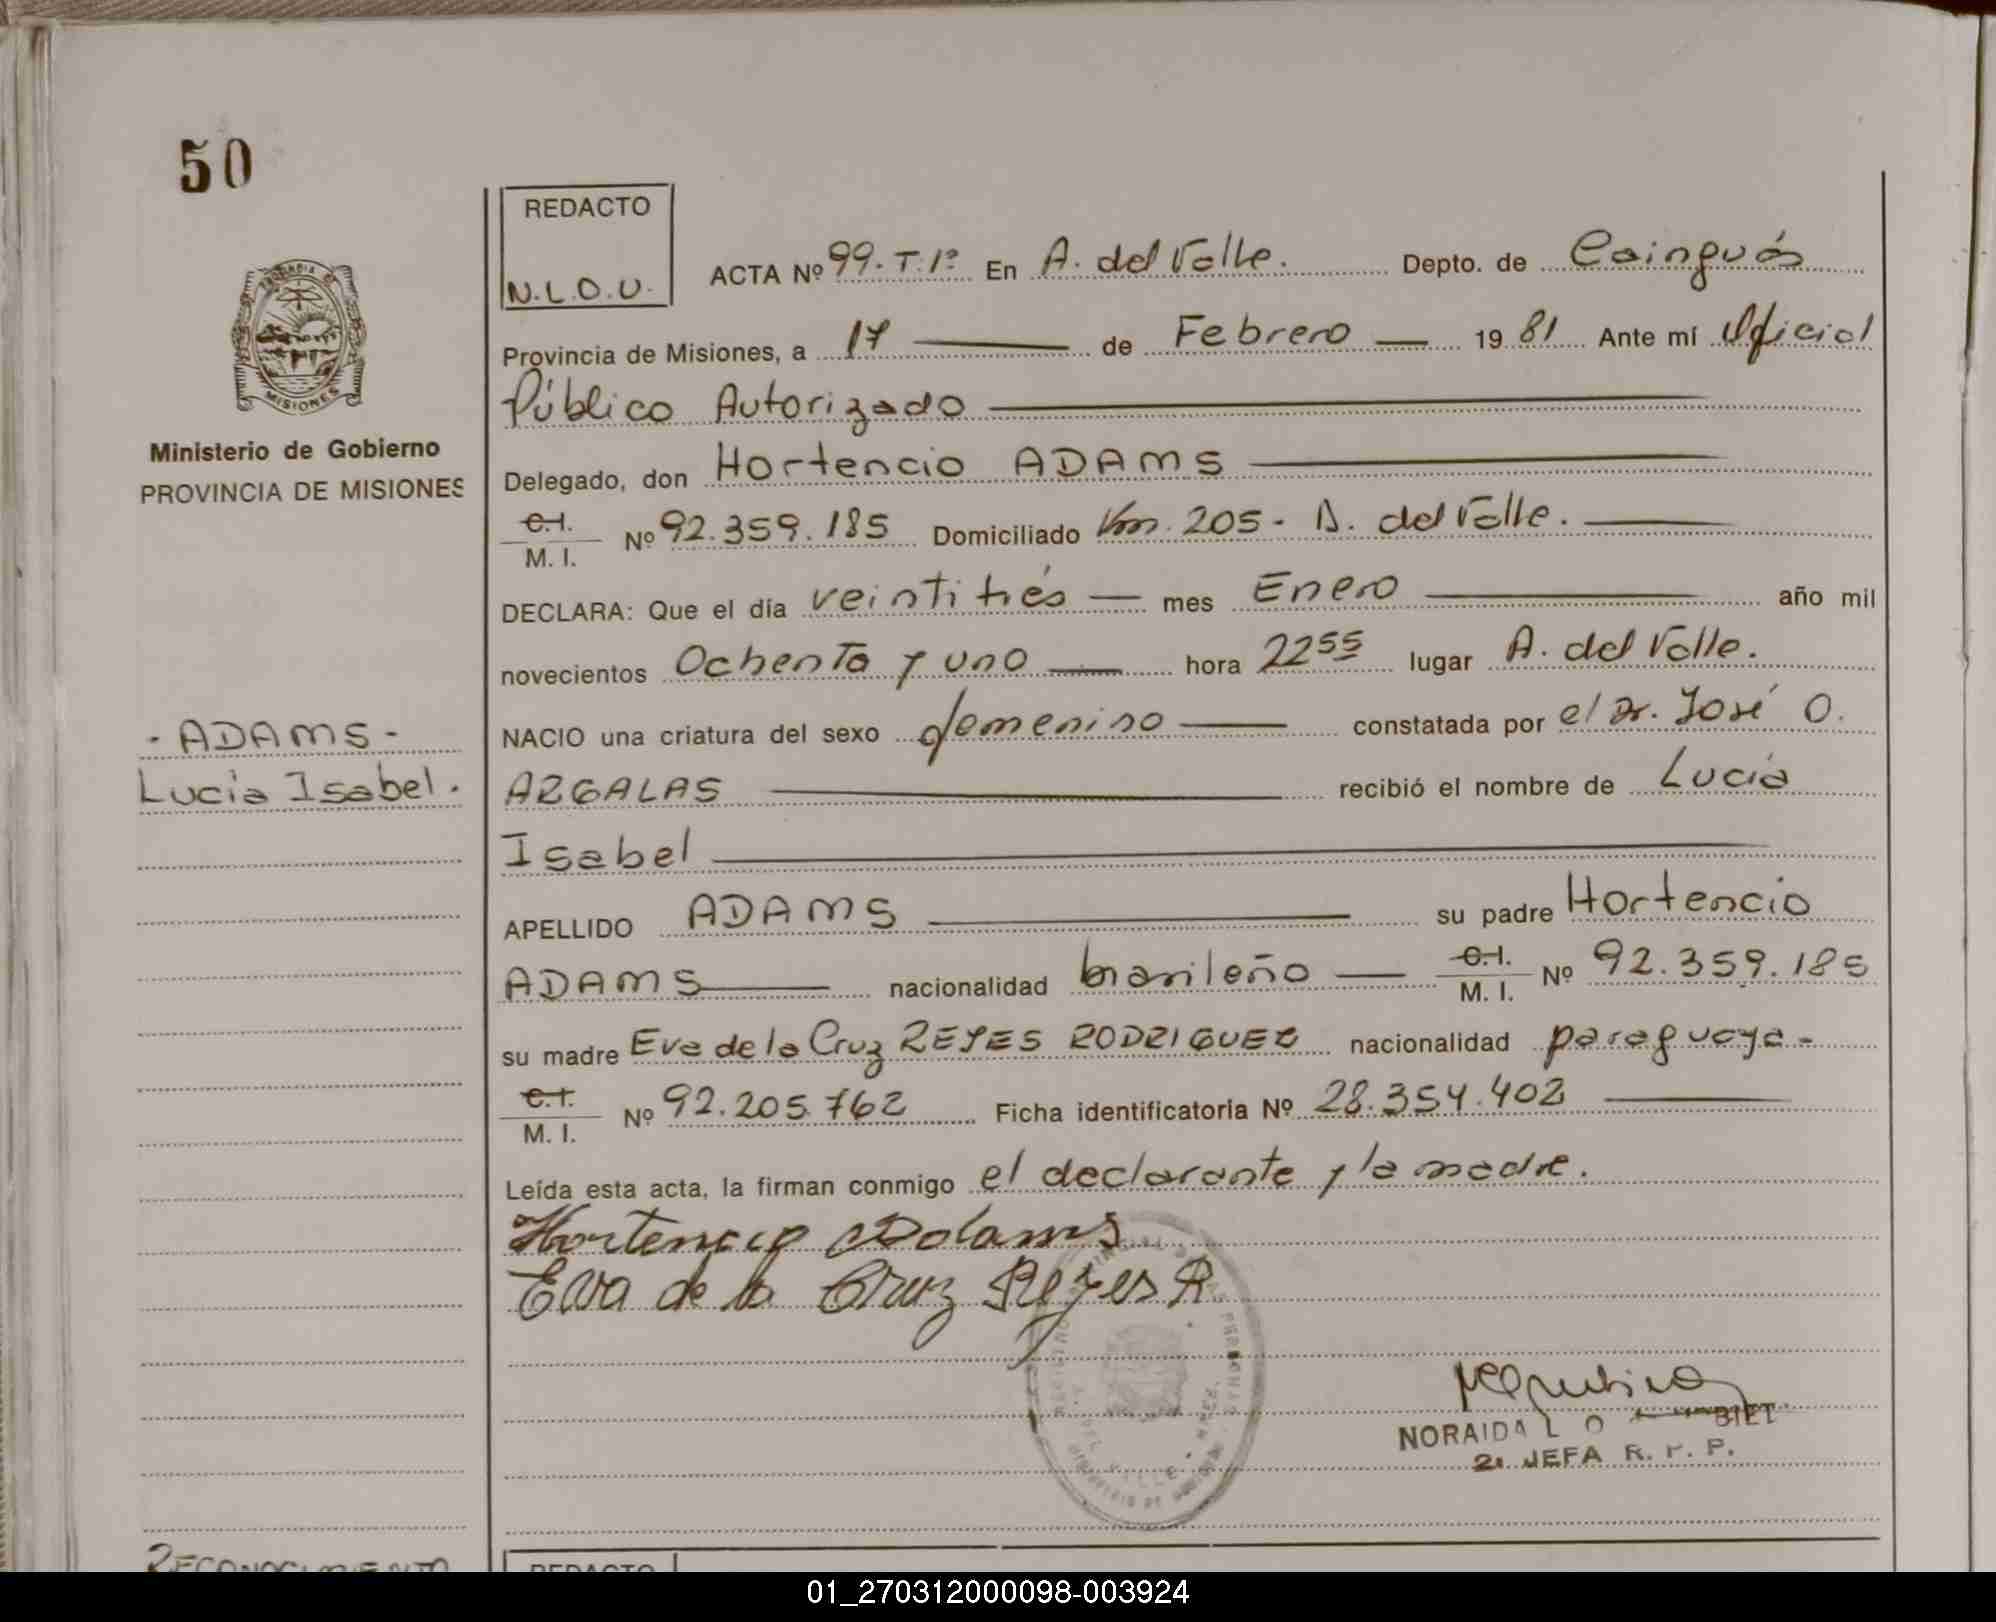 50
REDACTO
N.L.O.U.
ACTA Nº 99.T.1º En A. del Valle. Depto. de Cainguás
Provincia de Misiones, a 17 de Febrero 1981 Ante mí Oficial
Público Autorizado
Ministerio de Gobierno
PROVINCIA DE MISIONES
MISIONES
Delegado, don Hortencio ADAMS
C.I.
M. I. Nº 92.359.185 Domiciliado Km. 205 - A. del Valle.
DECLARA: Que el día veintitrés mes Enero año mil
novecientos Ochenta y uno hora 22 55 lugar A. del Valle.
NACIO una criatura del sexo femenino constatada por el Dr. José O.
- ADAMS -
Lucia Isabel.
ARGALAS recibió el nombre de Lucía
Isabel
APELLIDO ADAMS su padre Hortencio
ADAMS nacionalidad brasileño C.I.
M. I. Nº 92.359.185
su madre Eva de la Cruz REYES RODRIGUEZ nacionalidad paraguaya -
C.I.
M. I. Nº 92.205.762 Ficha identificatoria Nº 28.354.402
Leída esta acta, la firman conmigo el declarante y la madre.
Hortencio Adams
Eva de la Cruz Reyes R.
NORAIDA L O BIET
2. JEFA R. P. P.
RECONOCIMIENTO
REDACTO
01_270312000098-003924